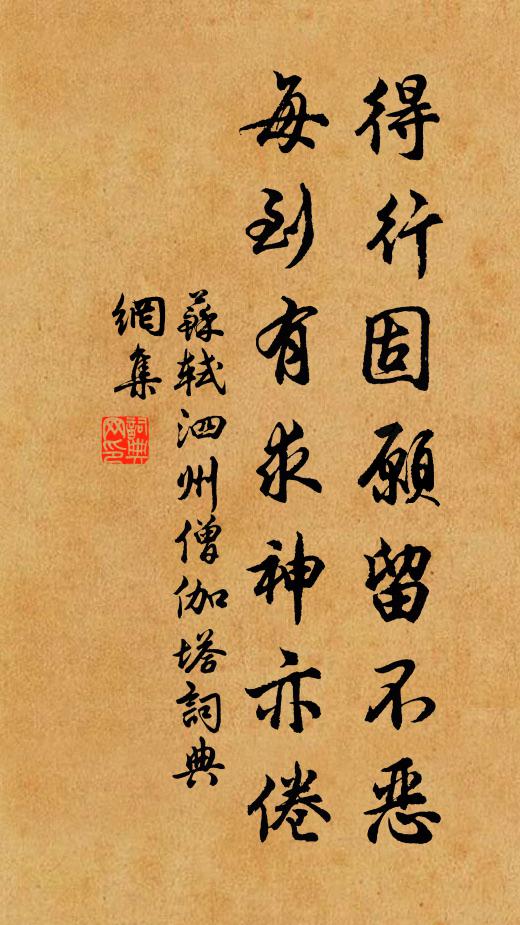 得行固願留不惡
每到有求神亦倦
蘇軾泗州僧伽塔詞典
網集
詞典
网印